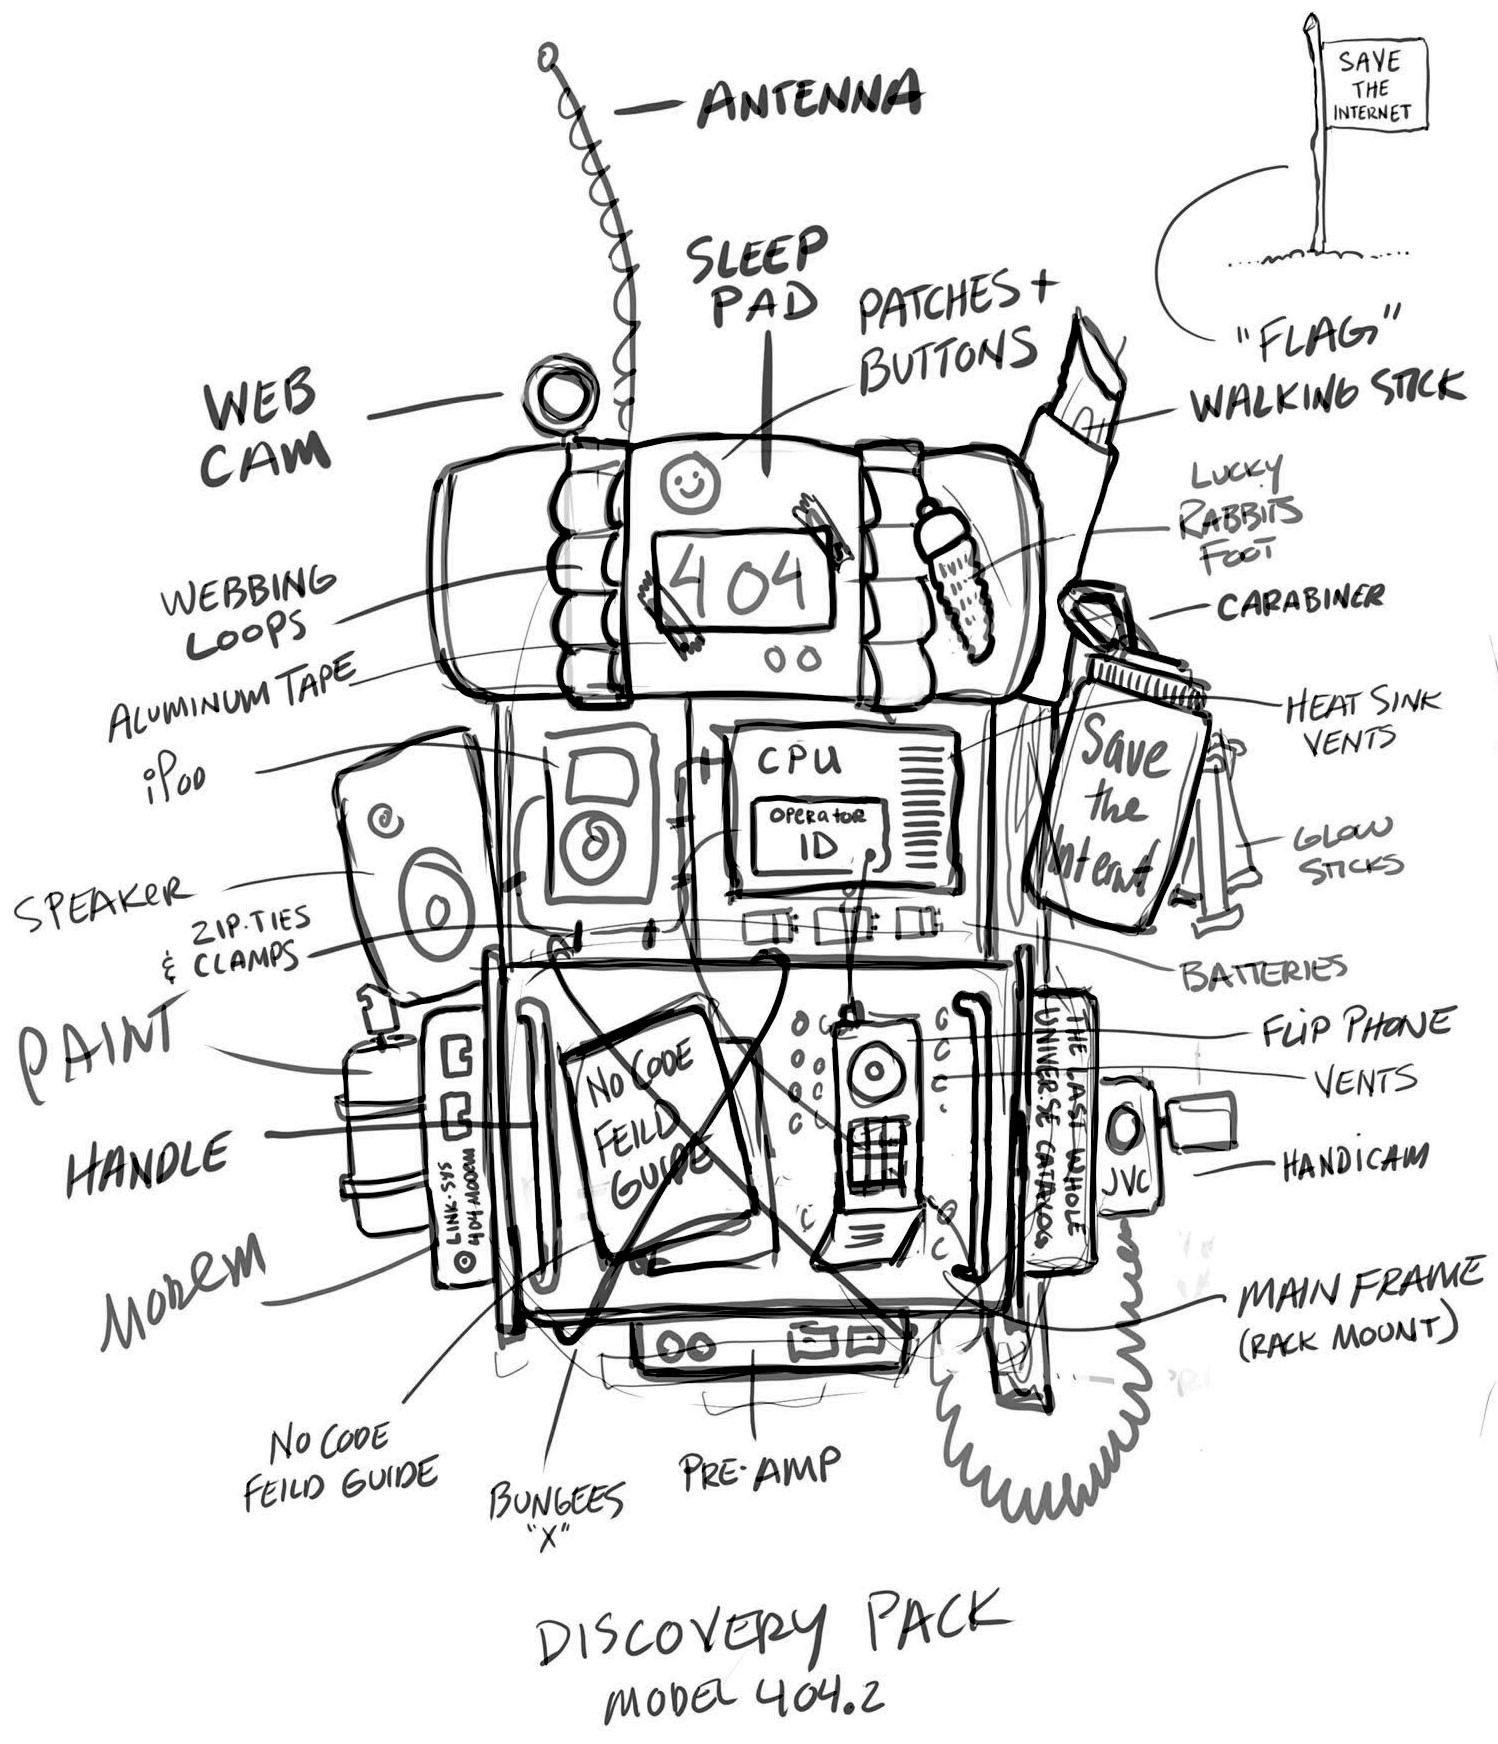 ANTENNA
SAVE
THE
INTERNET
SLEEP
PAD
PATCHES +
BUTTONS
"FLAG"
WALKING STICK
WEB
CAM
LUCKY
RABBITS
FOOT
404
WEBBING
LOOPS
CARABINER
ALUMINUM TAPE
HEAT SINK
VENTS
iPod
CPU
OPERATOR
ID
Save
the
Internet
GLOW
STICKS
SPEAKER
ZIP-TIES
& CLAMPS
BATTERIES
PAINT
FLIP PHONE
VENTS
NO CODE
FEILD
GUIDE
THE LAST WHOLE
UNIVERSE CATALOG
HANDLE
LINK-SYS
404 MODEM
JVC
HANDICAM
MODEM
MAIN FRAME
(RACK MOUNT)
NO CODE
FEILD GUIDE
BUNGEES
"X"
PRE-AMP
DISCOVERY PACK
MODEL 404.2